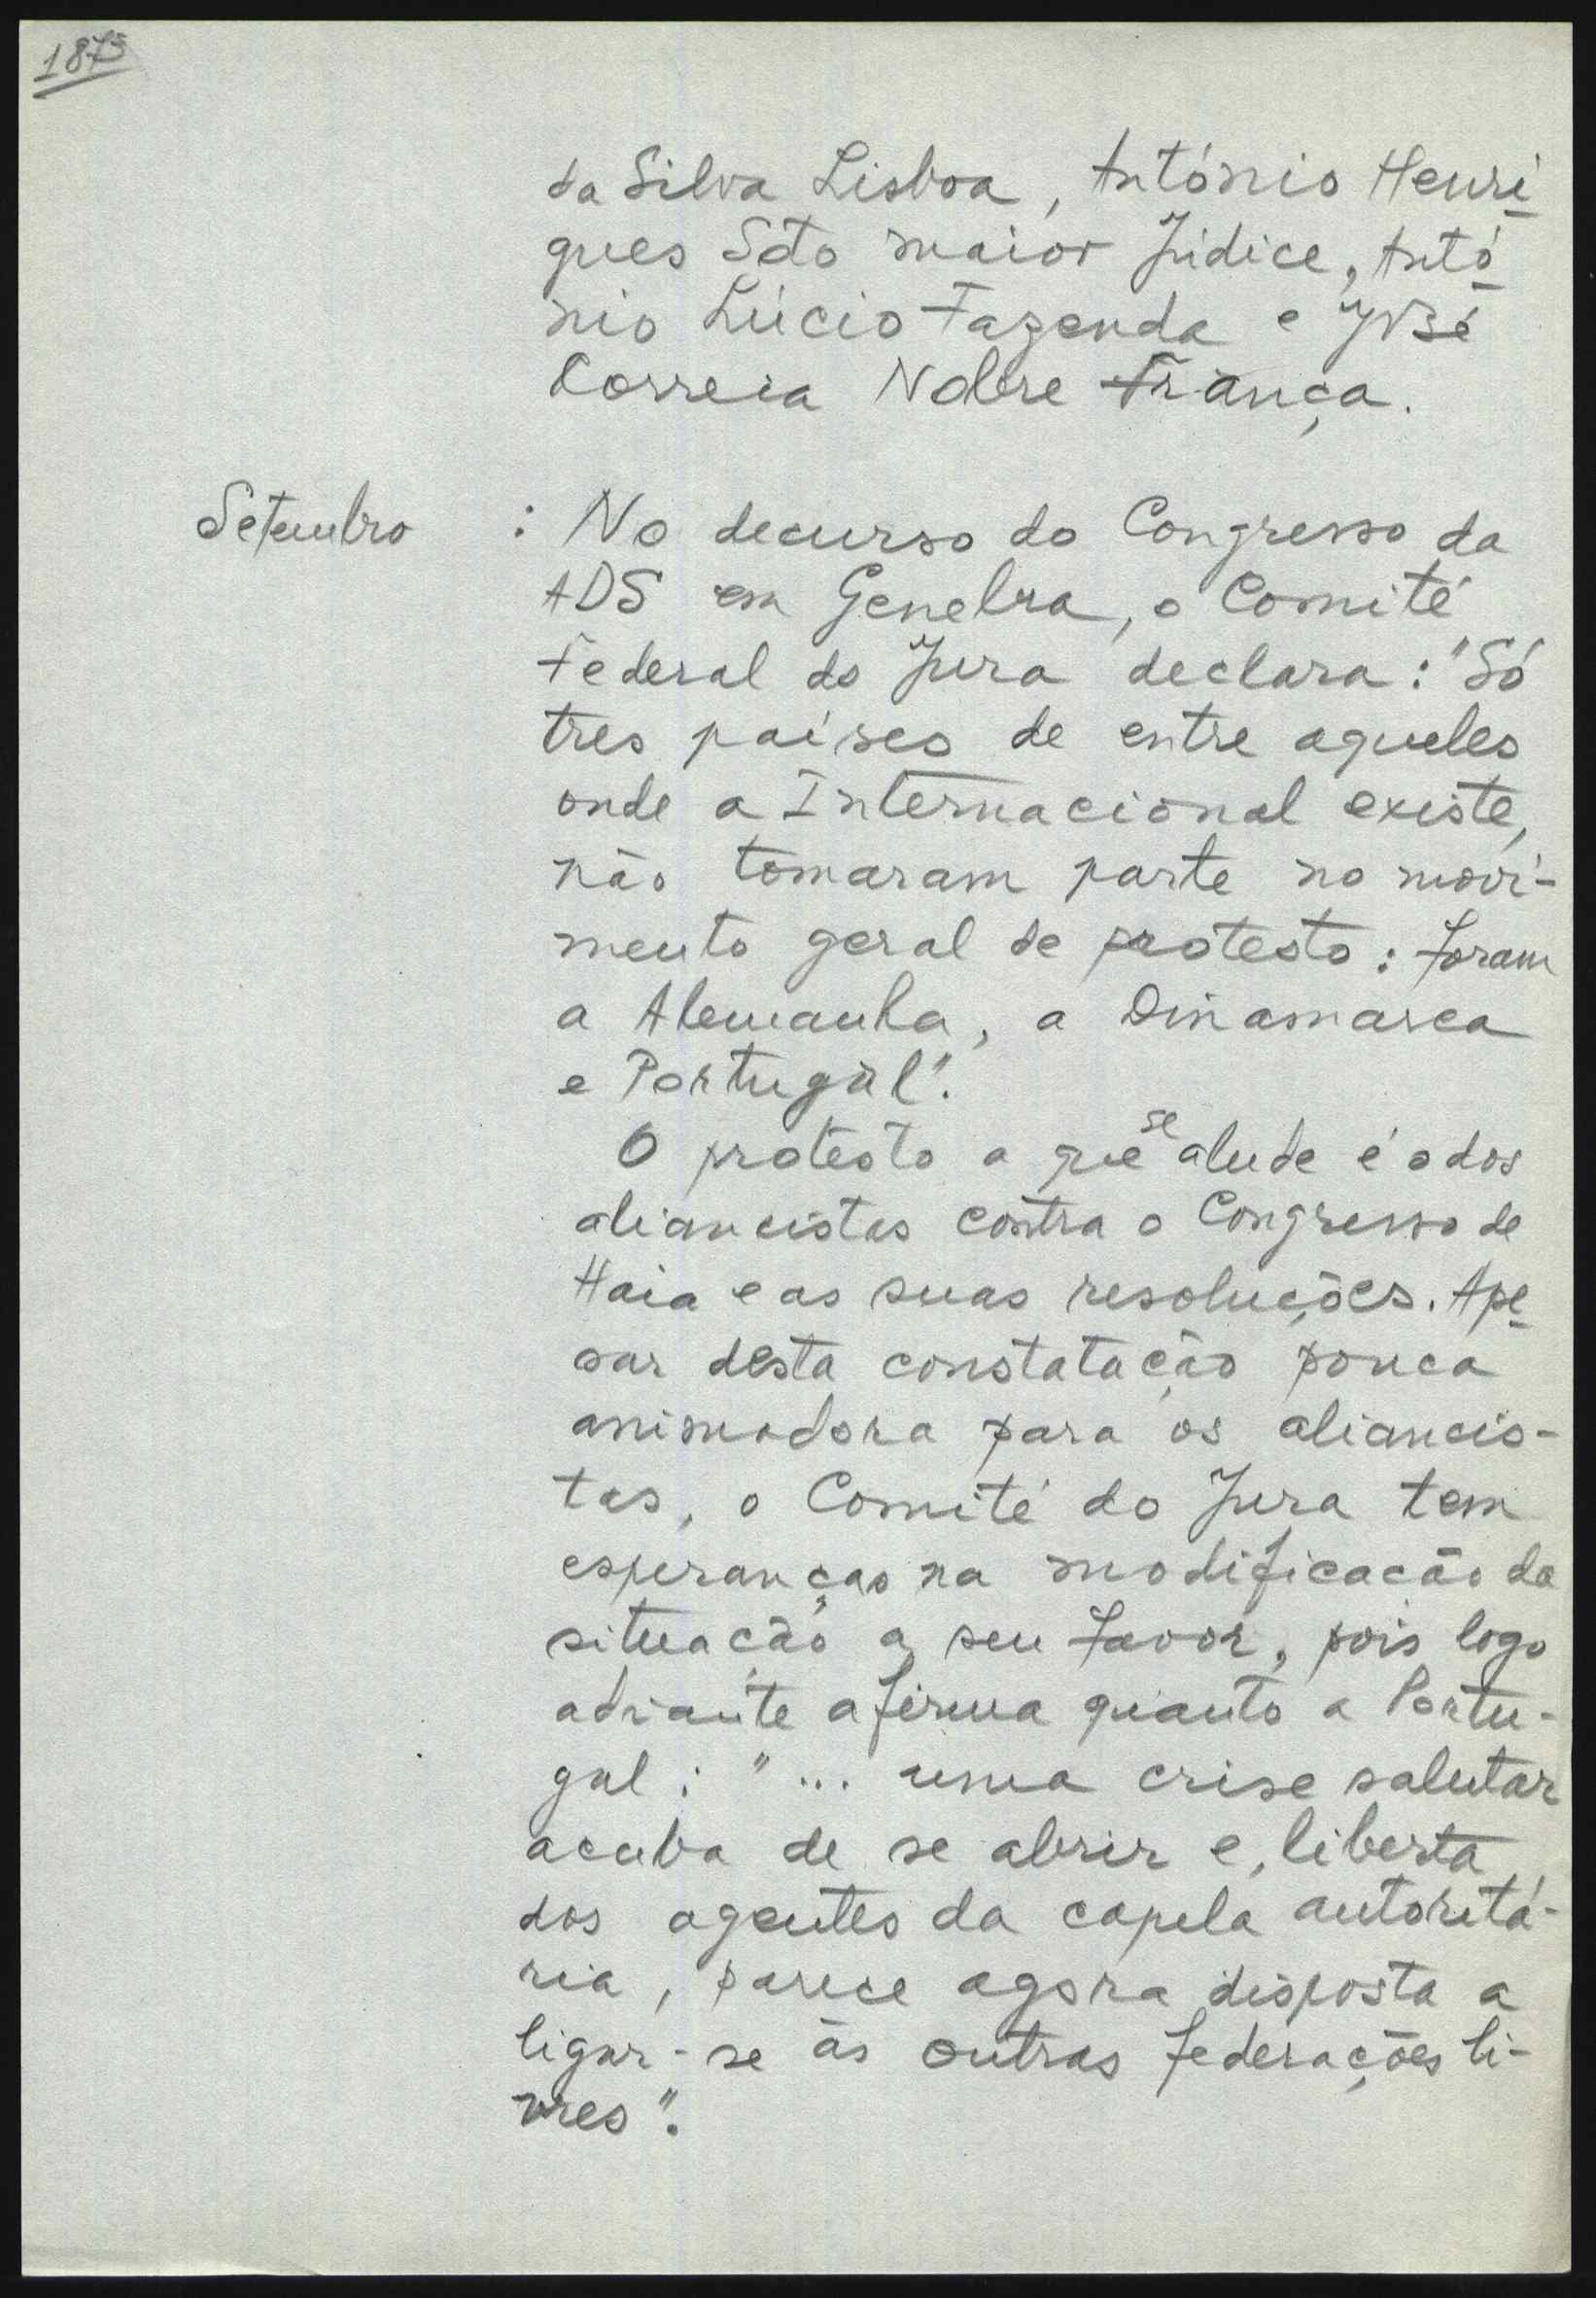 1873
da Silva Lisboa, António Henri
ques Soto maior Júdice, Antó
nio Lúcio Fazenda e José
Correia Nobre França.
Setembro : No decurso do Congresso da
ADS em Genebra, o Comité
Federal do Jura declara: "Só
tres países de entre aqueles
onde a Internacional existe,
não tomaram parte no movi-
mento geral de protesto: foram
a Alemanha, a Dinamarca
e Portugal".
O protesto a que se alude é o dos
aliancistas contra o Congresso de
Haia e as suas resoluções. Ape
sar desta constatação pouca
animadora para os aliancis-
tas, o Comité do Jura tem
esperanças na modificação da
situação a seu favor, pois logo
adiante afirma quanto a Portu-
gal: "... uma crise salutar
acaba de se abrir e, liberta
dos agentes da capela autoritá-
ria, parece agora disposta a
ligar-se às outras federações li-
vres".